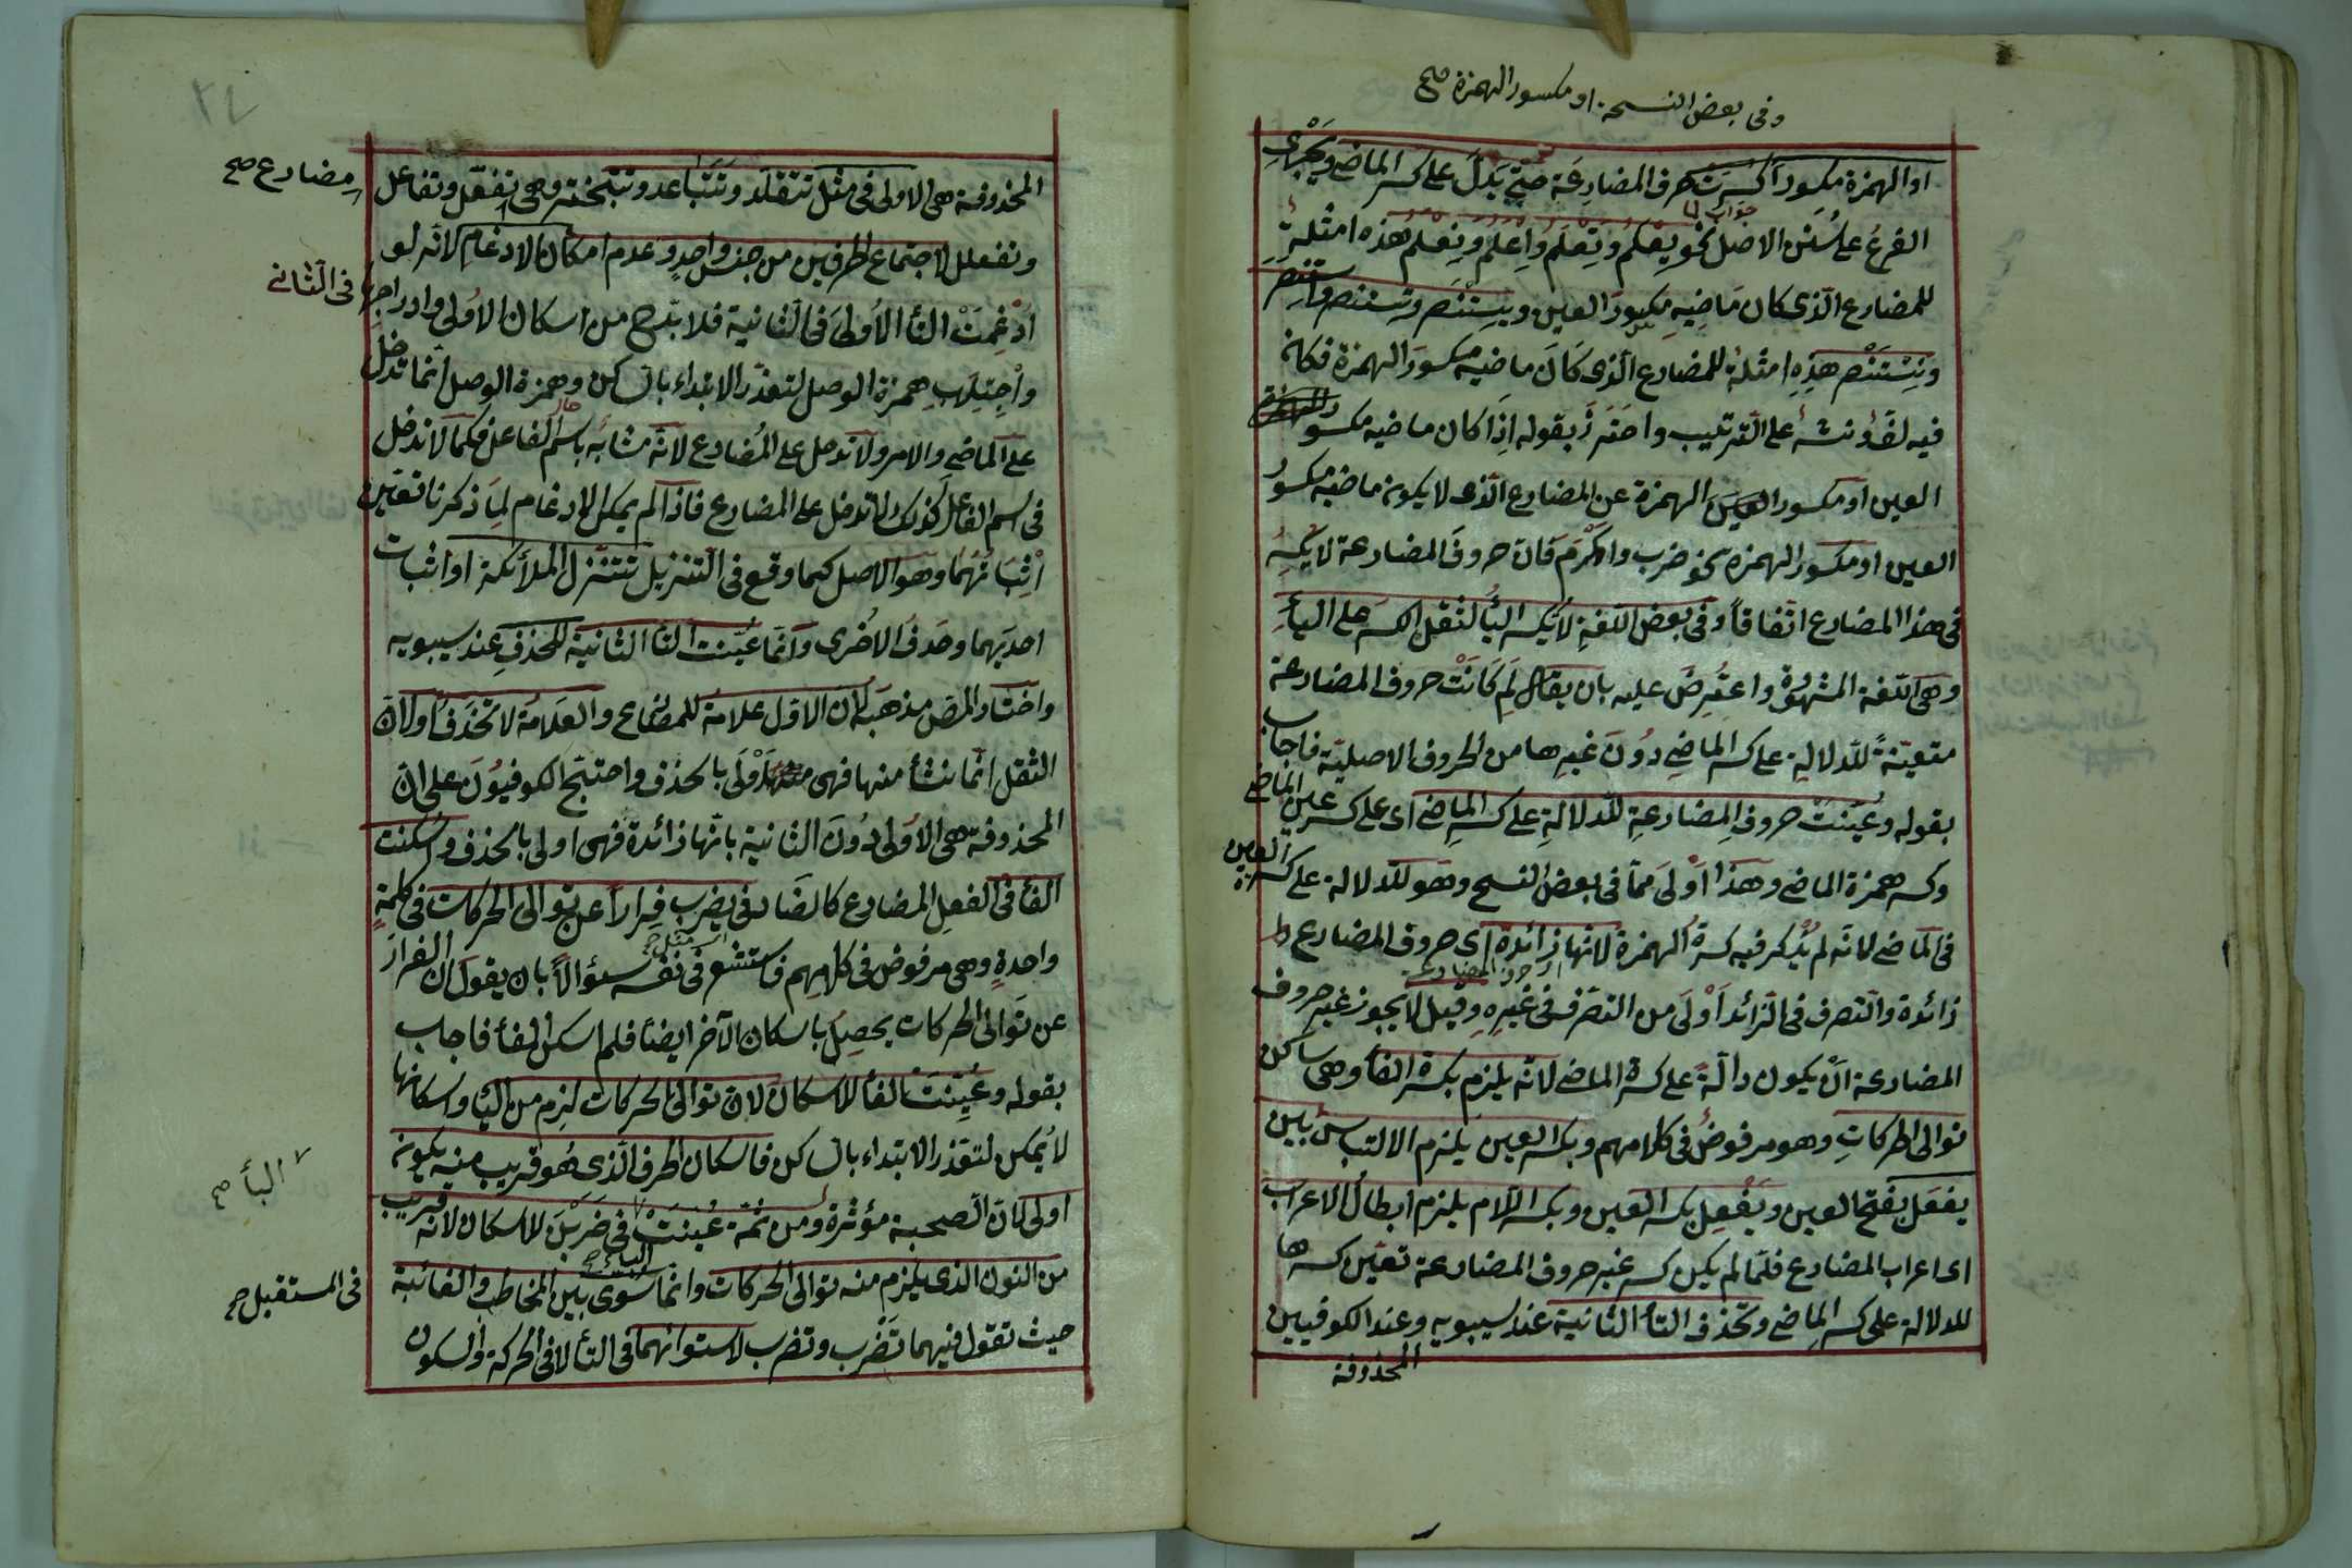 وفى بعض النسخة او مكسور الهمزة صح
او الهمزة مكسورا كسرت حرف المضارعة حتى يدل على كسر الماضى ويجرى
جواب لما
الفرع على سنن الاصل نحو يعلم وتعلم واعلم ونعلم هذه امثلة
للمضارع الذى كان ماضيه مكسور العين ويستنصر وتستنصر واستنصر
ونستنصر هذه امثلة للمضارع الذى كان ماضيه مكسور الهمزة فكان
فيه لف ونشر على الترتيب واحترز بقوله اذا كان ماضيه مكسور
العين او مكسور الهمزة عن المضارع الذى لا يكون ماضيه مكسور
العين او مكسور الهمزه نحو ضرب واكرم فان حروف المضارعة لا يكسر
فى هذا المضارع اتفاقا وفى بعض اللغة لا يكسر اليأ لثقل الكسر على اليأ
وهى اللغة المشهورة واعترض عليه بان يقال لم كانت حروف المضارعة
متعينة للدلالة على كسر الماضى دون غيرها من الحروف الاصلية فاجاب
بقوله وعينت حروف المضارعة للدلالة على كسر الماضى اى على كسر عين الماضى
وكسر همزة الماضى وهذا اولى مما فى بعض النسخ وهو للدلالة على كسرة العين
فى الماضى لانه لم يذكر فيه كسرة الهمزة لانها زائدة اى حروف المضارع
اى حروف المضارعة
زائدة والتصرف فى الزائد اولى من التصرف فى غيره وقيل لا يجوز غير حروف
المضارعة ان يكون دالة على كسرة الماضى لانه يلزم بكسرة الفأ وهى ساكن
توالى الحركات وهو مرفوض فى كلامهم وبكسر العين يلزم الالتباس بين
يفعل بفتح العين ويفعل بكسر العين وبكسر اللام يلزم ابطال الاعراب
اى اعراب المضارع فلما لم يكن كسر غير حروف المضارعة تعين كسرها
للدلالة على كسر الماضى وتحذف التأ الثانية عند سيبويه وعند الكوفيين
المحذوفة
٢٤
المحذوفة هى الاولى فى مثل تتقلد وتتباعد وتتبختر وهى تفعل وتفاعل
مضارع صح
وتفعلل لاجتماع الحرفين من جنس واحد وعدم امكان الادغام لانه لو
ادغمت التأ الاولى فى الثانية فلا بد ح من اسكان الاولى وادراجها فى الثانى
واجتلب همزة الوصل لتعذر الابتداء بالساكن وهمزة الوصل انما تدخل
على الماضى والامر ولا تدخل على المضارع لانه مشابه باسم الفاعل فكما لا تدخل
فى اسم الفاعل كذلك لا تدخل على المضارع فاذا لم يمكن الادغام لما ذكرنا تعين
اثباتهما وهو الاصل كما وقع فى التنزيل تتنزل الملائكة او اثبات
احديهما وحذف الاخرى وانما عينت التا الثانية للحذف عند سيبويه
واختار المص مذهبه لان الاول علامة للمضارع والعلامة لا تحذف او لان
الثقل انما نشأ منها فهى اولى بالحذف واحتج الكوفيون على ان
المحذوفة هى الاولى دون الثانية بانها زائدة فهى اولى بالحذف وسكنت
الفأ فى الفعل المضارع كالضاد فى يضرب فرارا عن توالى الحركات فى كلمة
واحدة وهى مرفوض فى كلامهم فاستشعر فى نفسه سؤالا بان يقول ان الفرار
عن توالى الحركات يحصل باسكان الآخر ايضا فلم اسكن الفأ فاجاب
بقوله وعينت الفأ للاسكان لان توالى الحركات لزم من اليأ واسكانها
لا يمكن لتعذر الابتداء بالساكن فاسكان الحرف الذى هو قريب منه يكون
اليأ صح
اولى لان الصحبة مؤثرة ومن ثمة عينت فى ضربن للاسكان لانه قريب
الباء صح
من النون الذى يلزم منه توالى الحركات وانما سوى بين المخاطب والغائبة
فى المستقبل صح
حيث تقول فيهما تضرب وتضرب لاستوائهما فى التأ لا فى الحركة والسكون